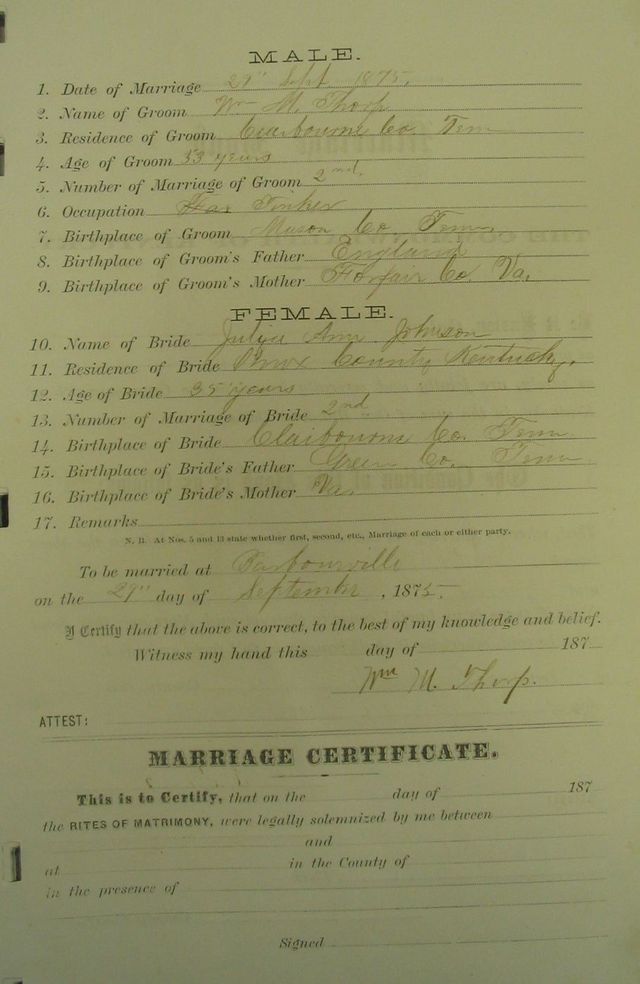 MALE.
1. Date of Marriage 29" Sept 1875.
2. Name of Groom Wm M. Thorp
3. Residence of Groom Claibourne Co. Tenn
4. Age of Groom 53 years
5. Number of Marriage of Groom 2nd.
6. Occupation
7. Birthplace of Groom Co. Tenn
8. Birthplace of Groom's Father England
9. Birthplace of Groom's Mother Co. Va.
FEMALE.
10. Name of Bride Ann Johnson
11. Residence of Bride Knox County Kentucky.
12. Age of Bride 35 years
13. Number of Marriage of Bride 2nd
14. Birthplace of Bride Claibourne Co. Tenn
15. Birthplace of Bride's Father Green Co. Tenn
16. Birthplace of Bride's Mother Va.
17. Remarks
N. B. At Nos. 5 and 13 state whether first, second, etc., Marriage of each or either party.
To be married at Barbourville
on the 29" day of September, 1875.
I Certify that the above is correct, to the best of my knowledge and belief.
Witness my hand this day of 187
Wm M. Thorp.
ATTEST:
MARRIAGE CERTIFICATE.
This is to Certify, that on the day of 187
the RITES OF MATRIMONY, were legally solemnized by me between
and
at in the County of
in the presence of
Signed